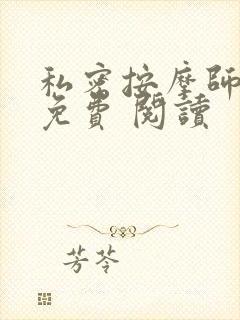 私密按摩師
免費 閱讀
芳苓